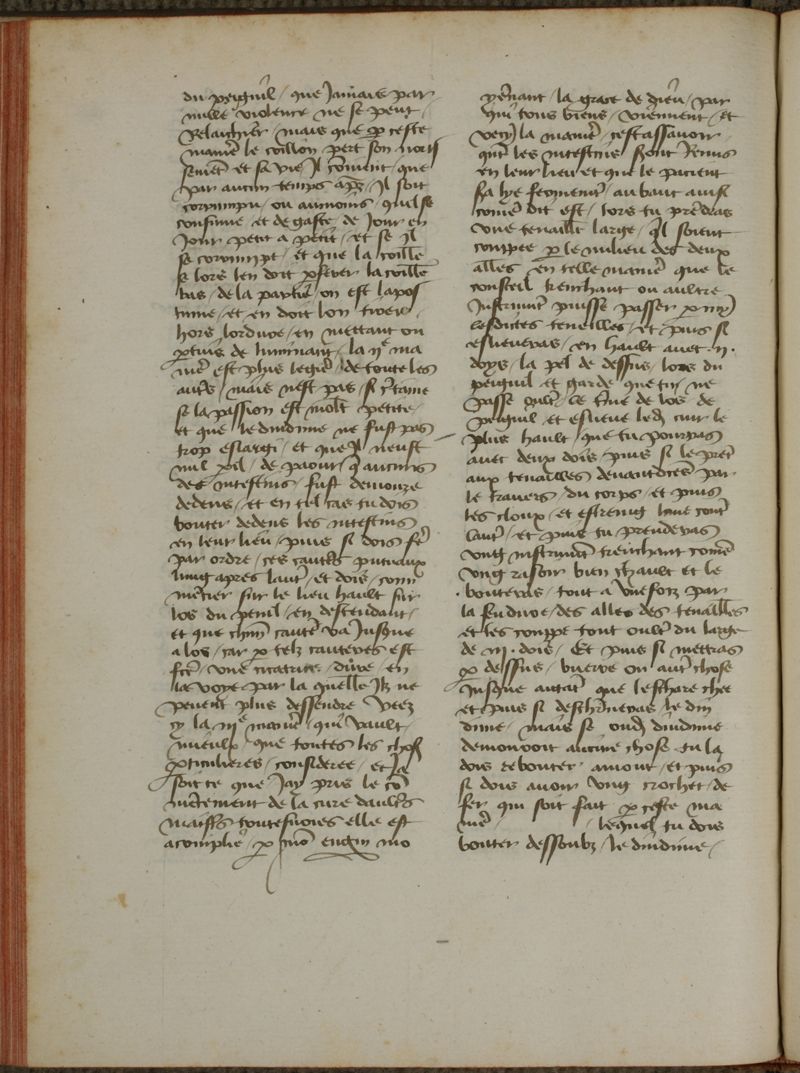 du peiguil / que Jamais par
nulle violence ne se peut
Relaichier / mais que p ceste
maniere le coillon pert son noris
semēt et sa vie Il cōvient que
par aucun temps aps / Il soit
corrumpu / ou aumoins / quil se
consume / et degaste de Jour en
Jour petit a petit / et se Il
se corrumpt / et que la coille
se lors len doit pserver la coille
bas / de la partie / ou est lapos
tume / et en doit lon tirer
hors / lordure / en mettant ou
ptuis de luminant / la ije ma
niē est plus legiē / de toutes les
autrs / mais nest pas si certaine
se la passion est molt petite
et que le dindime ne fust pas
trop eslargi / et que Il neust
nul pil / de paour q aucuns
des intestins / fust demouree
dedens / et en tel cas tu dois
bouter dedens les intestins
en leur lieu / puis si dois fē
par ordre / ces cauters
lung apres lautre / et dois / com
mencier sur le lieu hault sur
los du penil / en descendant /
et que chūn cautē va Jusque
a los / car p telz cauteres est
fcte / une cicatrice / dure / en
la voye par la quelle Ilz ne
peuent plus dessendre Veez
cy la iije maniē / qui vault
mieulx que toutes les chos
pticulieres / consideree / et Ja
soit ce que Jay pris le cō
mēcement de la cure daultrs
maistrs toutesvoies elle est
acomplie / p mō engin mo
yenant / la grace de dieu / par
qui tous biens / viennent / et
vecy la maniē / cest assavoir
quāt les intestins seront Remis
en leur lieu et que le pacient
sera lye fermemēt / au banc ainsi
comē dit est / lors tu prēdras
une tenaille large / qil soient
couppee p le milieu des deux
alles en telle maniē que le
trenchant ou aultre
Instrumēt puisse passer p my
lesdictes teneilles / et puis si
eslieveras / en hault avec ij
doys / la pel de dessus / los du
peiguil et garde que tu ne
passe oultre ce
peiguil et eslieve led cuir le
plus hault que tu pourras
avec deux dois / puis si le prē
aux tenailles devantdictes par
le travers / du corps / et puis
les cloux / et estreing lune contre
lautre / et puis tu prenderas
ung instrumēt trenchant comē
ung rasoir bien chault et le
bouteras / tout a
la fendure / des alles des tenailles
et les couppe tout oultre du large
de iij dois / Et puis si mettras
p dessus / buerre ou autre chose
Jusque autāt que leschare chee
et puis si le din
dime / mais se oud dindime
demouroit aucune chose tu la
dois rebouter amont / et puis
si dois avoir ung crochet / de
fer qui soit fait p ceste ma
niē / lequel tu dois
bouter dessoubz / le dindime /